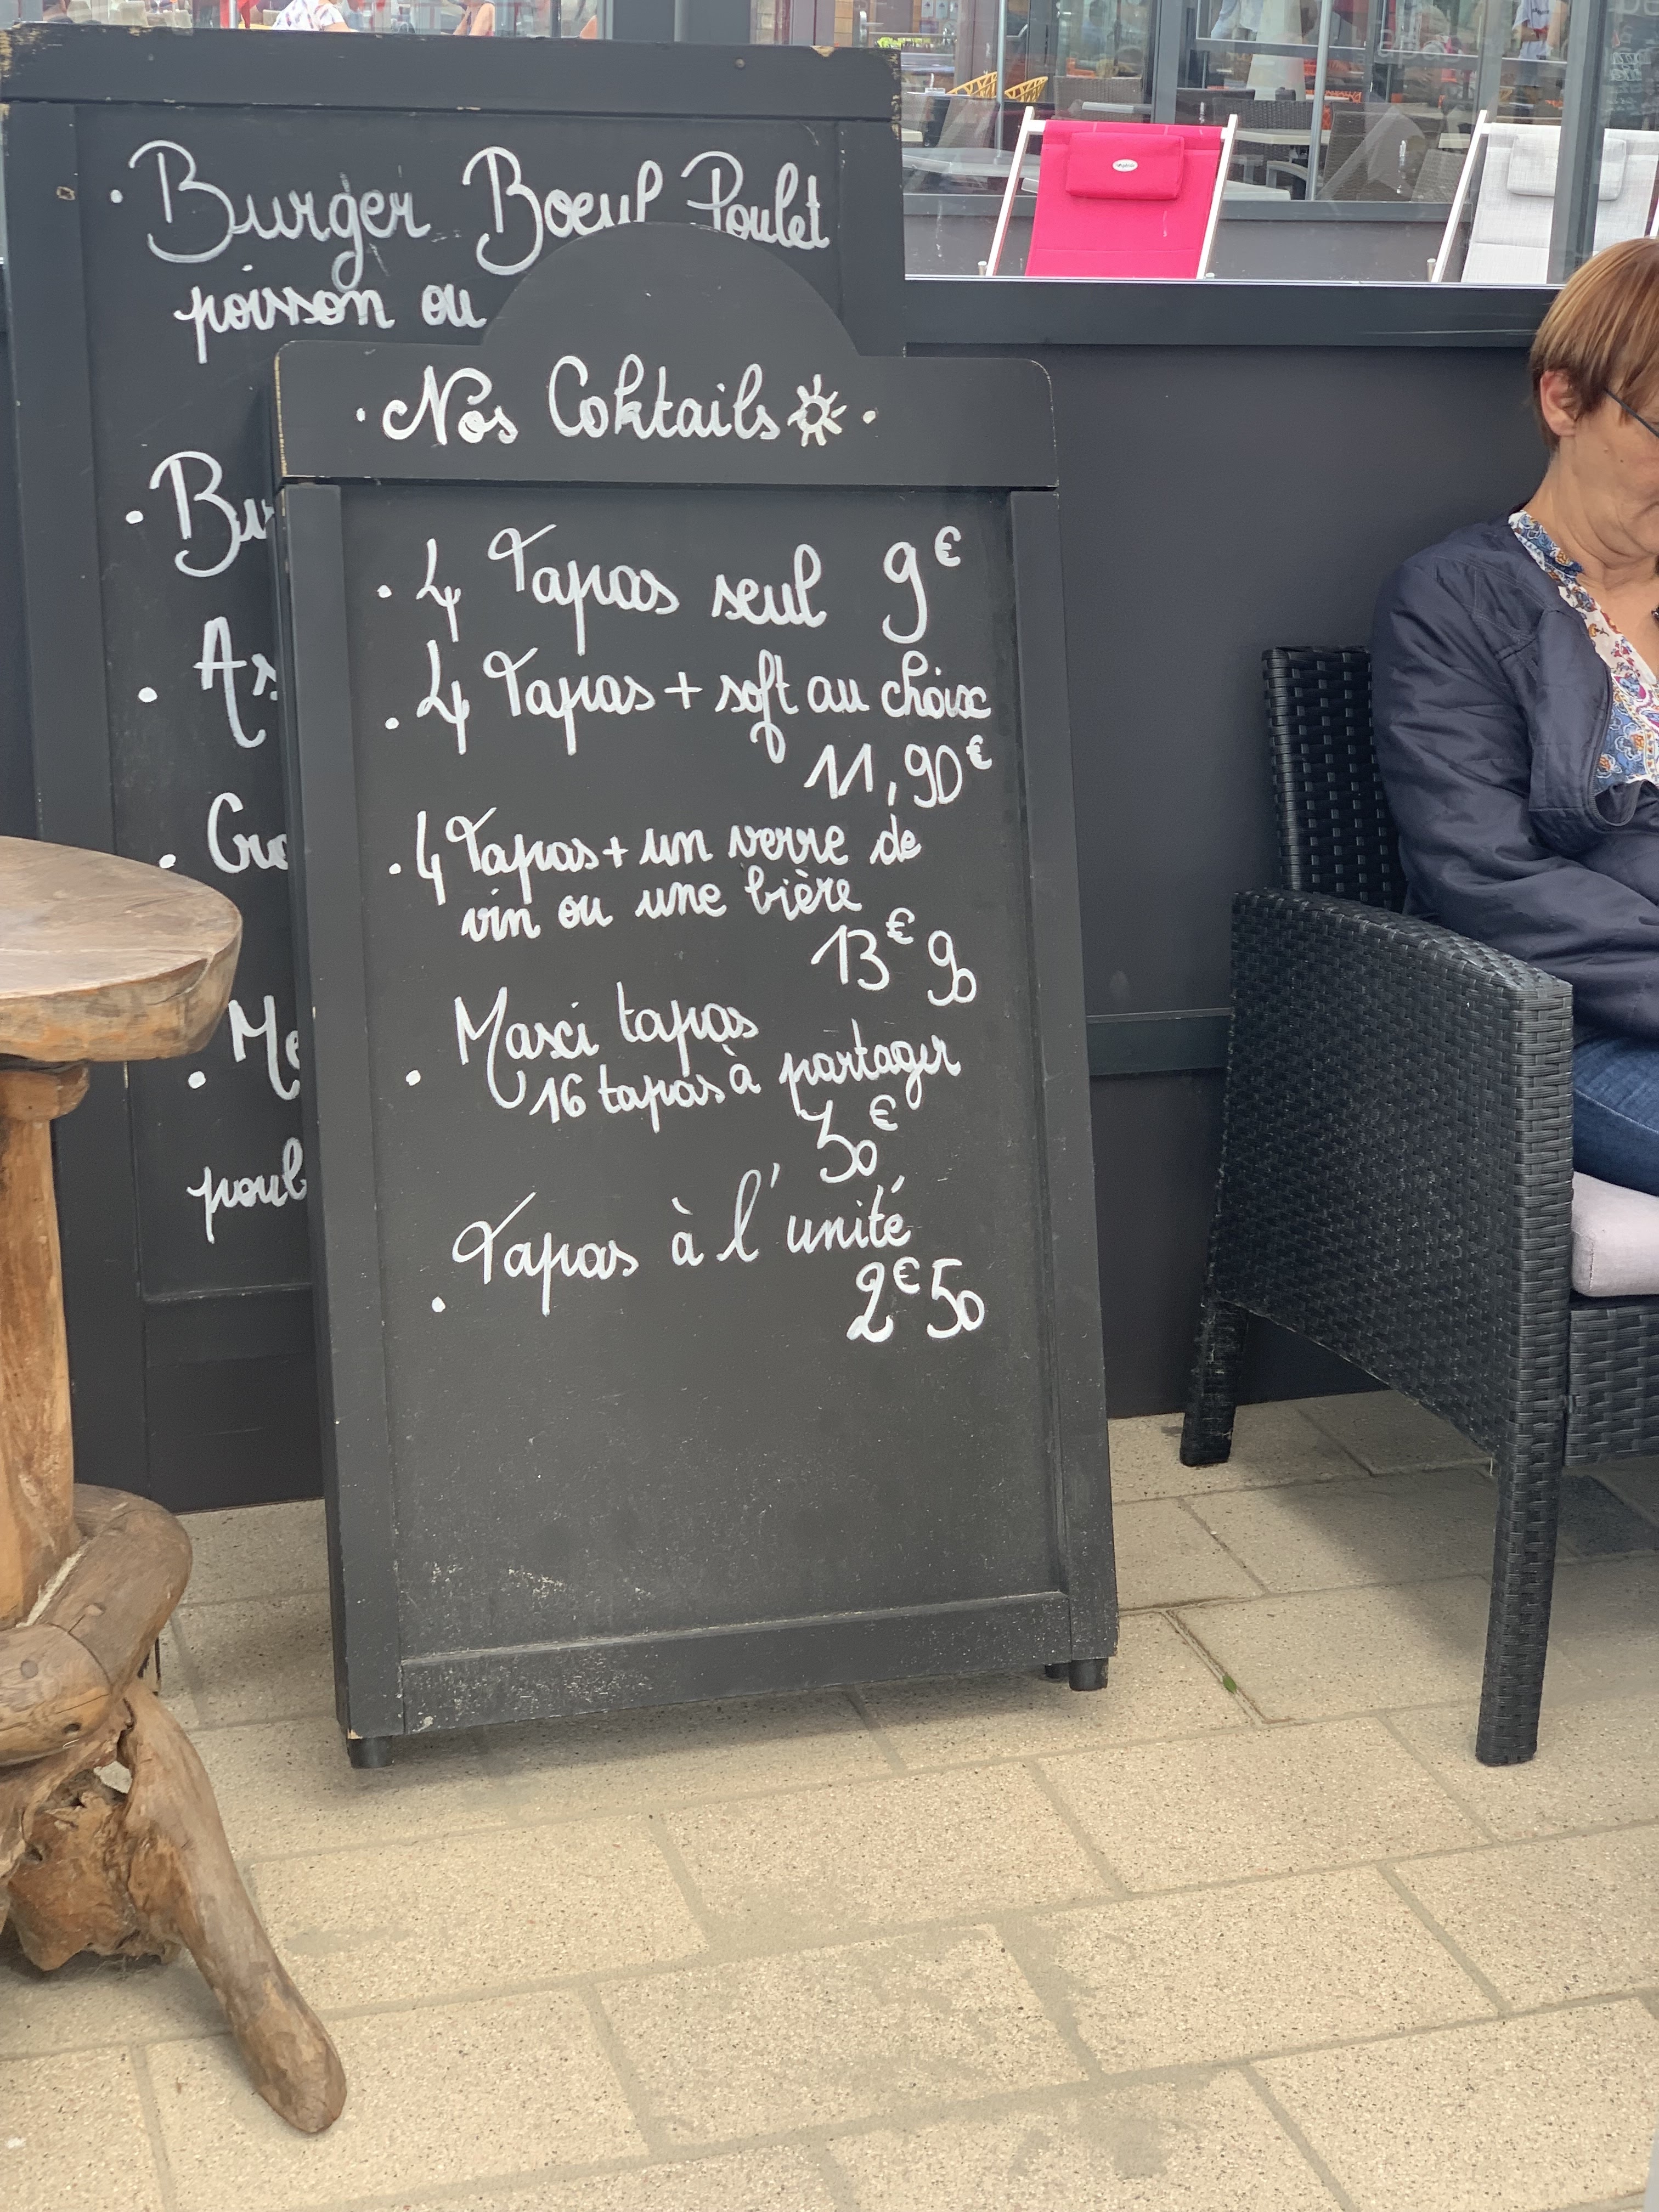 · Burger Boeuf Poulet
poisson ou
· Nos Coktails ·
· 4 Tapas seul 9€
· 4 Tapas + soft au choix
11,90€
· 4 Tapas + un verre de
vin ou une bière
13€90
· Maxi tapas
16 tapas à partager
30€
· Tapas à l'unité
2€50